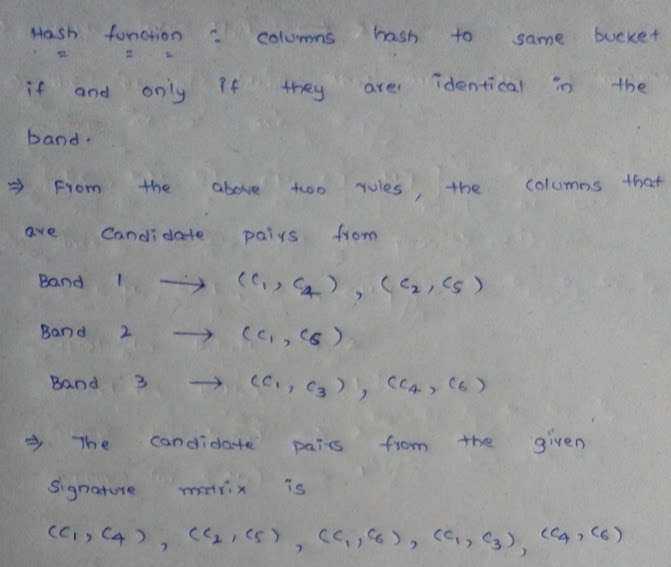 Hash function : columns hash to same bucket
if and only if they are identical in the
band.
⇒ From the above two rules, the columns that
are candidate pairs from
Band 1 → (C1, C4), (C2, C5)
Band 2 → (C1, C6)
Band 3 → (C1, C3), (C4, C6)
⇒ The candidate pairs from the given
signature matrix is
(C1, C4), (C2, C5), (C1, C6), (C1, C3), (C4, C6)